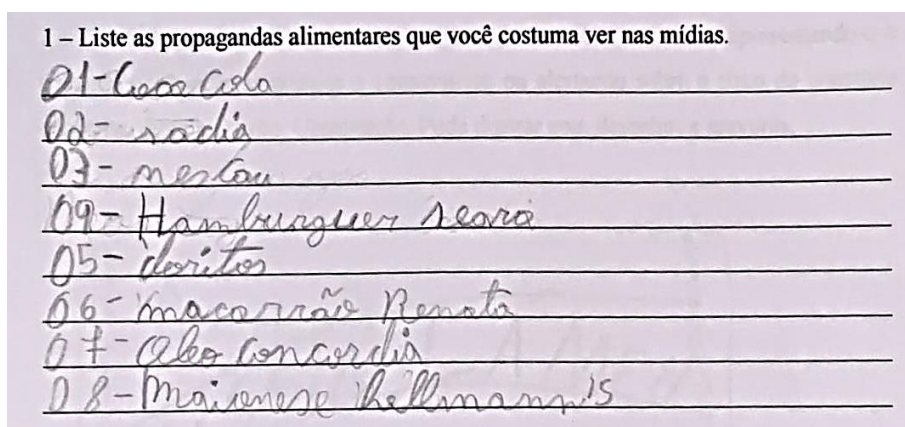 1 – Liste as propagandas alimentares que você costuma ver nas mídias.
01- Coca Cola
02- sadia
03- nestau
04- Hamburguer seara
05- doritos
06- macarrão Renata
07- oleo concordia
08- Maionese hellmann's